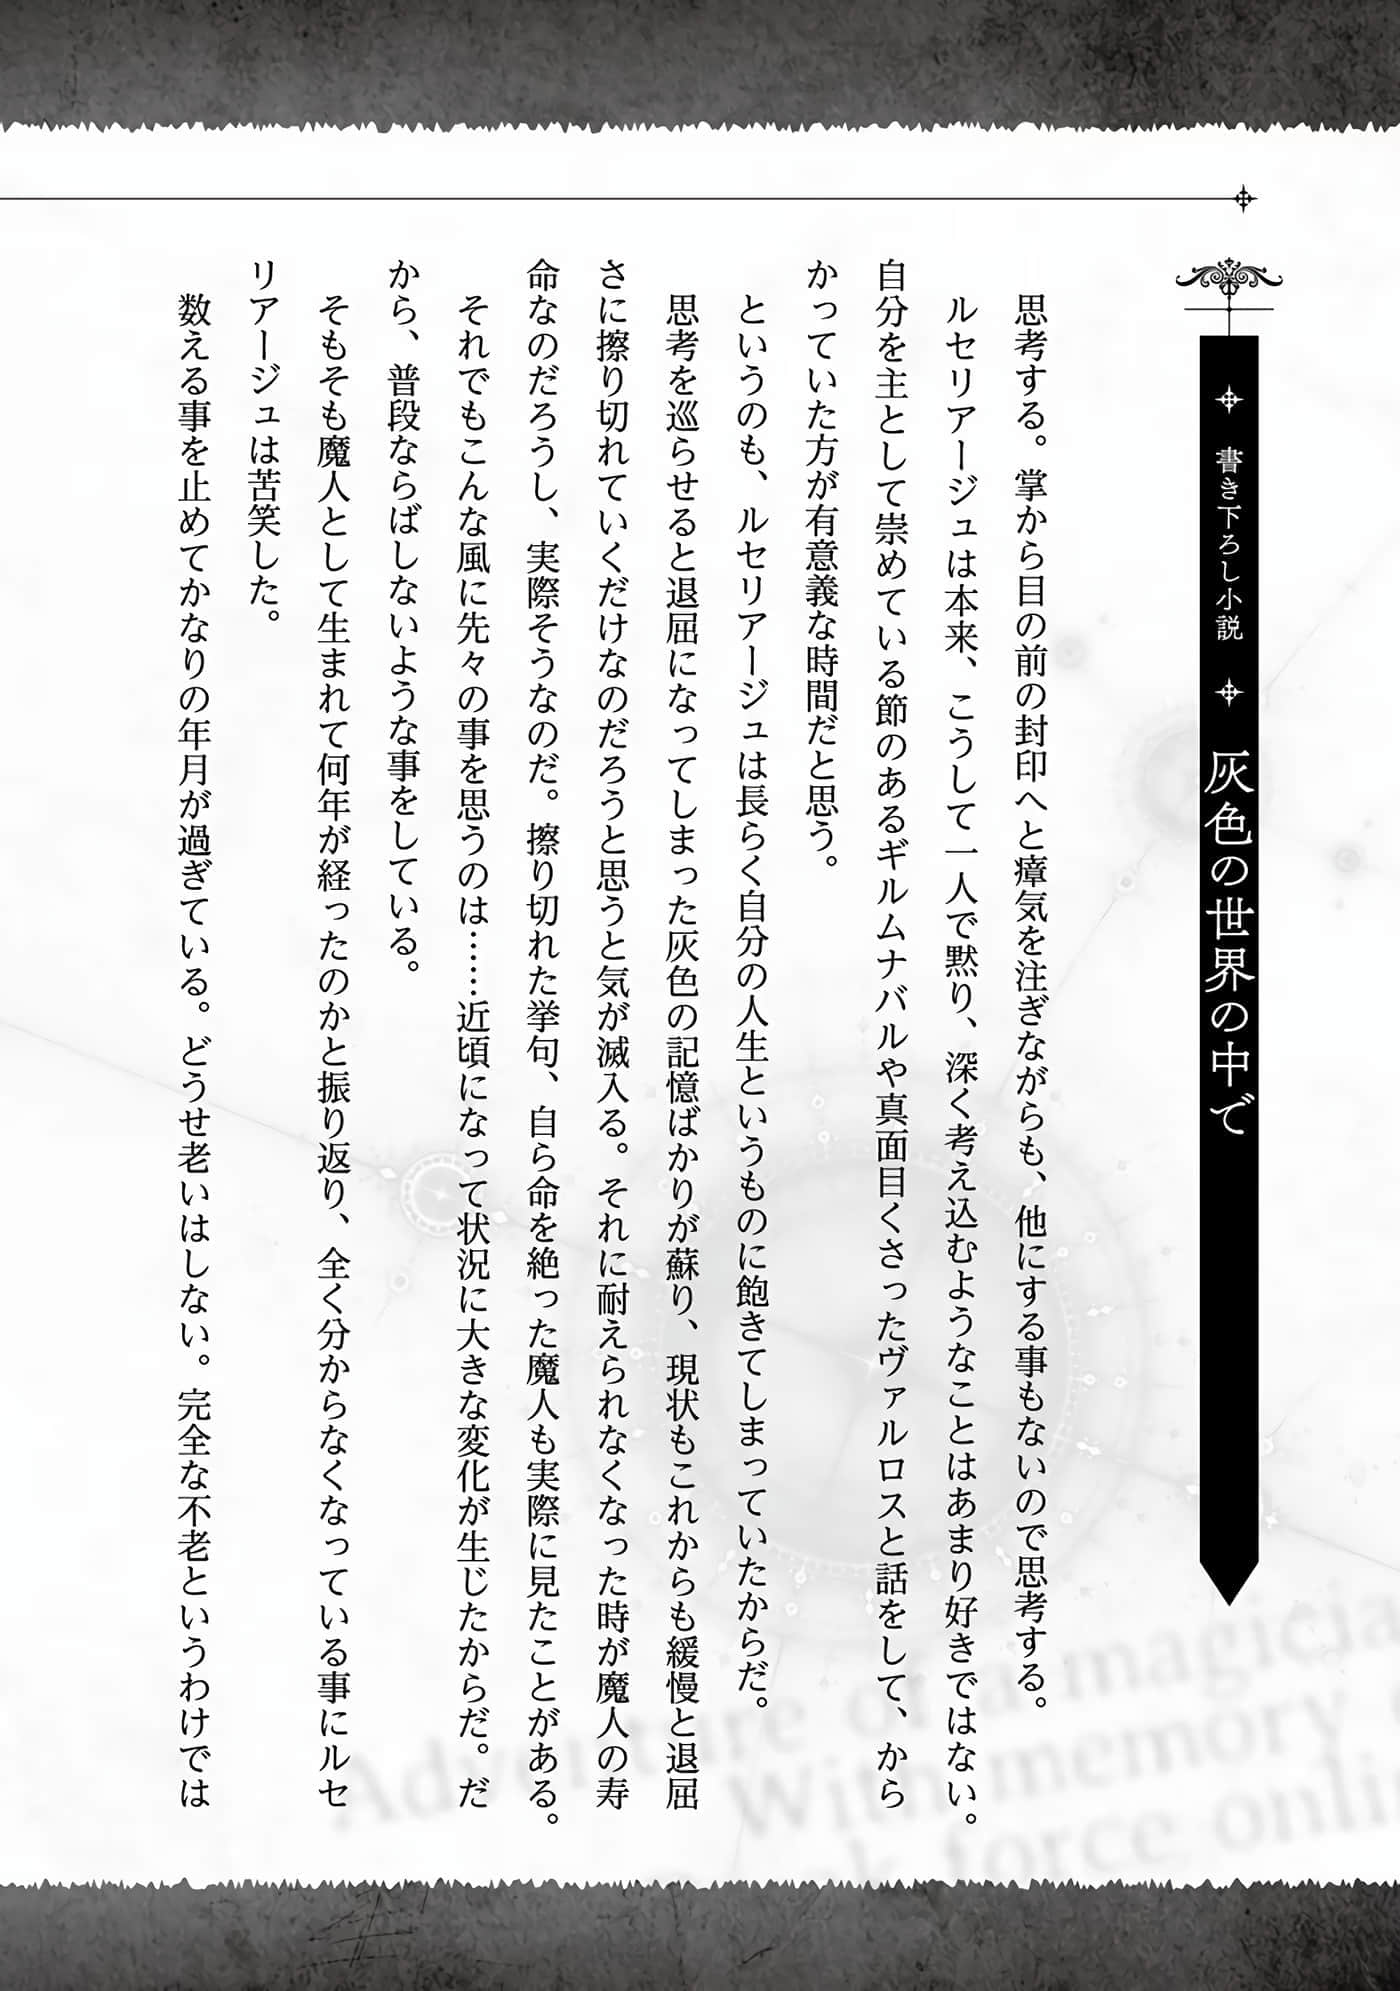 書き下ろし小説
灰色の世界の中で
思考する。掌から目の前の封印へと瘴気を注ぎながらも、他にする事もないので思考する。
ルセリアージュは本来、こうして一人で黙り、深く考え込むようなことはあまり好きではない。
自分を主として崇めている節のあるギルムナバルや真面目くさったヴァルロスと話をして、から
かっていた方が有意義な時間だと思う。
というのも、ルセリアージュは長らく自分の人生というものに飽きてしまっていたからだ。
思考を巡らせると退屈になってしまった灰色の記憶ばかりが蘇り、現状もこれからも緩慢と退屈
さに擦り切れていくだけなのだろうと思うと気が滅入る。それに耐えられなくなった時が魔人の寿
命なのだろうし、実際そうなのだ。擦り切れた挙句、自ら命を絶った魔人も実際に見たことがある。
それでもこんな風に先々の事を思うのは……近頃になって状況に大きな変化が生じたからだ。だ
から、普段ならばしないような事をしている。
そもそも魔人として生まれて何年が経ったのかと振り返り、全く分からなくなっている事にルセ
リアージュは苦笑した。
数える事を止めてかなりの年月が過ぎている。どうせ老いはしない。完全な不老というわけでは
Adventure of a magicia
With memory
force onli